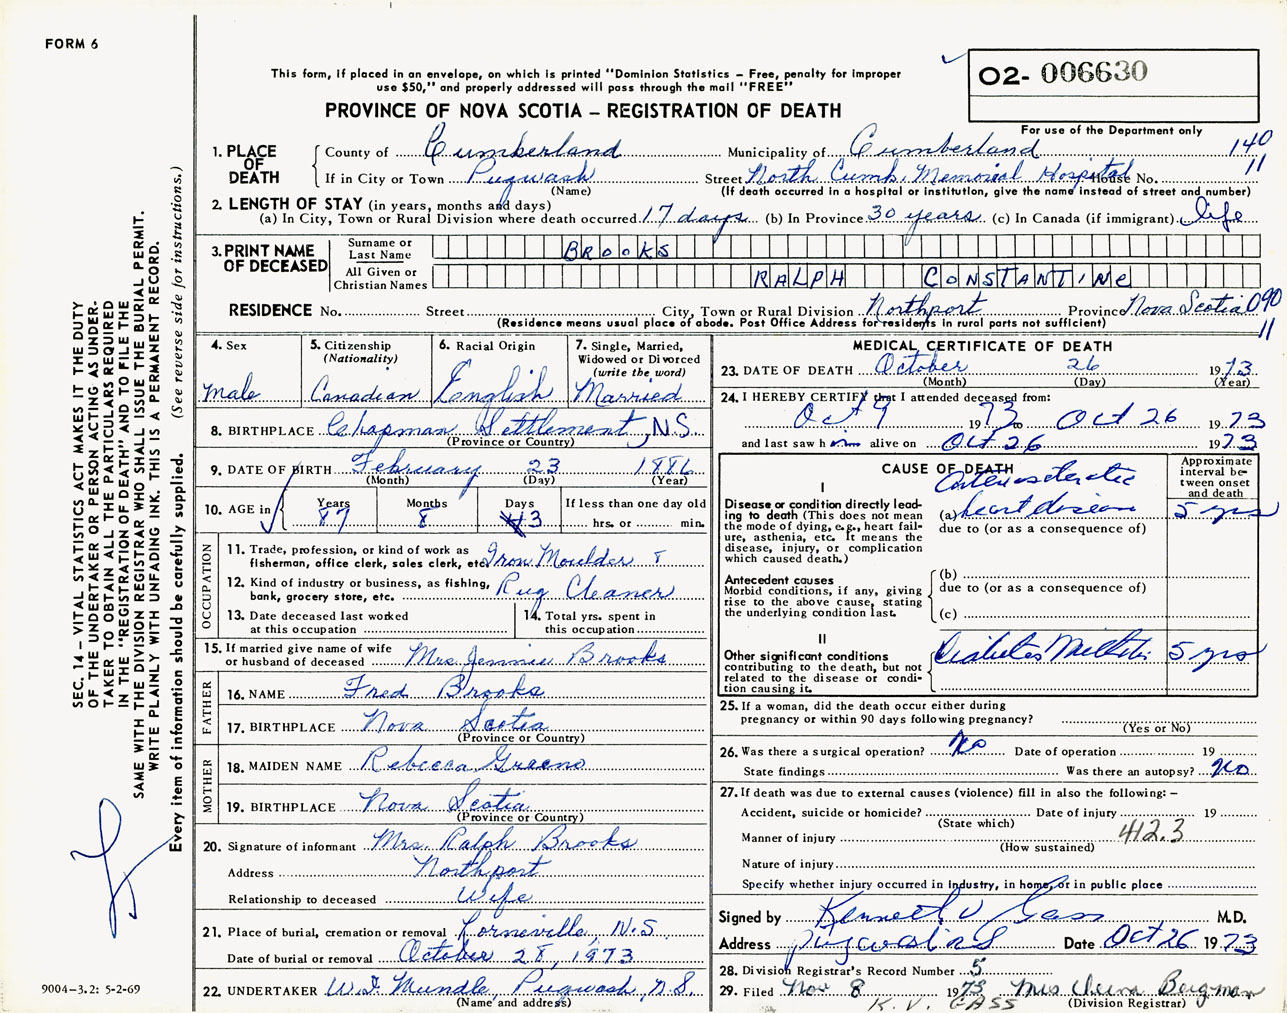 FORM 6
O2- 006630
This form, if placed in an envelope, on which is printed "Dominion Statistics – Free, penalty for improper
use $50," and properly addressed will pass through the mail "FREE"
PROVINCE OF NOVA SCOTIA – REGISTRATION OF DEATH
For use of the Department only
1. PLACE OF DEATH County of Cumberland Municipality of Cumberland 140
If in City or Town Pugwash Street North Cumb. Memorial Hospital House No. 11
(Name) (If death occurred in a hospital or institution, give the name instead of street and number)
2. LENGTH OF STAY (in years, months and days)
(a) In City, Town or Rural Division where death occurred 17 days (b) In Province 30 years (c) In Canada (if immigrant) life
3. PRINT NAME OF DECEASED Surname or Last Name BROOKS
All Given or Christian Names RALPH CONSTANTINE
RESIDENCE No. Street City, Town or Rural Division Northport Province Nova Scotia 090
(Residence means usual place of abode. Post Office Address for residents in rural parts not sufficient) 11
4. Sex Male
5. Citizenship (Nationality) Canadian
6. Racial Origin English
7. Single, Married, Widowed or Divorced (write the word) Married
8. BIRTHPLACE Chapman Settlement, N.S.
(Province or Country)
9. DATE OF BIRTH February 23 1886
(Month) (Day) (Year)
10. AGE in Years 87 Months 8 Days 3 If less than one day old
hrs. or min.
OCCUPATION
11. Trade, profession, or kind of work as fisherman, office clerk, sales clerk, etc. Iron Moulder
12. Kind of industry or business, as fishing, bank, grocery store, etc. Rug Cleaner
13. Date deceased last worked at this occupation
14. Total yrs. spent in this occupation
15. If married give name of wife or husband of deceased Mrs. Jennie Brooks
FATHER
16. NAME Fred Brooks
17. BIRTHPLACE Nova Scotia
(Province or Country)
MOTHER
18. MAIDEN NAME Rebecca Greeno
19. BIRTHPLACE Nova Scotia
(Province or Country)
20. Signature of informant Mrs. Ralph Brooks
Address Northport
Relationship to deceased Wife
21. Place of burial, cremation or removal Lorneville, N.S.
Date of burial or removal October 28, 1973
22. UNDERTAKER Mundle, Pugwash, N.S.
(Name and address)
MEDICAL CERTIFICATE OF DEATH
23. DATE OF DEATH October 26 1973
(Month) (Day) (Year)
24. I HEREBY CERTIFY that I attended deceased from:
Oct 9 1973 to Oct 26 1973
and last saw him alive on Oct 26 1973
CAUSE OF DEATH
Approximate interval between onset and death
I
Disease or condition directly leading to death (This does not mean the mode of dying, e.g., heart failure, asthenia, etc. It means the disease, injury, or complication which caused death.)
(a) arteriosclerotic heart disease 5 yrs
due to (or as a consequence of)
Antecedent causes
Morbid conditions, if any, giving rise to the above cause, stating the underlying condition last.
(b)
due to (or as a consequence of)
(c)
II
Other significant conditions contributing to the death, but not related to the disease or condition causing it.
Diabetes Mellitus 5 yrs
25. If a woman, did the death occur either during pregnancy or within 90 days following pregnancy?
(Yes or No)
26. Was there a surgical operation? No Date of operation 19
State findings Was there an autopsy? No
27. If death was due to external causes (violence) fill in also the following: –
Accident, suicide or homicide? Date of injury 19
(State which)
Manner of injury 412.3
(How sustained)
Nature of injury
Specify whether injury occurred in industry, in home, or in public place
Signed by Kenneth V Gass M.D.
Address Pugwash N.S. Date Oct 26 1973
28. Division Registrar's Record Number 5
29. Filed Nov 8 1973 Mrs Bergman
K. V. GASS (Division Registrar)
SEC. 14 – VITAL STATISTICS ACT MAKES IT THE DUTY
OF THE UNDERTAKER OR PERSON ACTING AS UNDER-
TAKER TO OBTAIN ALL THE PARTICULARS REQUIRED
IN THE "REGISTRATION OF DEATH" AND TO FILE THE
SAME WITH THE DIVISION REGISTRAR WHO SHALL ISSUE THE BURIAL PERMIT.
WRITE PLAINLY WITH UNFADING INK. THIS IS A PERMANENT RECORD.
Every item of information should be carefully supplied. (See reverse side for instructions.)
9004–3.2: 5-2-69